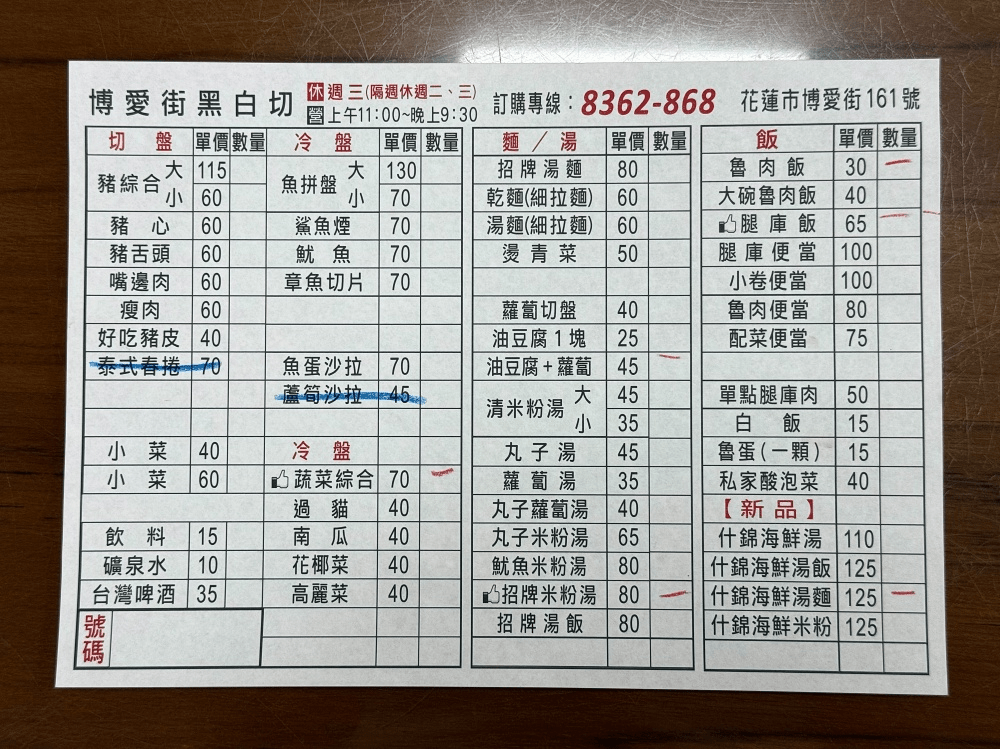 博愛街黑白切 休 週三(隔週休週二、三) 訂購專線：8362-868 花蓮市博愛街161號
營 上午11:00~晚上9:30
切盤 單價 數量
豬綜合 大 115
小 60
豬心 60
豬舌頭 60
嘴邊肉 60
瘦肉 60
好吃豬皮 40
泰式春捲 70
小菜 40
小菜 60
飲料 15
礦泉水 10
台灣啤酒 35
號碼
冷盤 單價 數量
魚拼盤 大 130
小 70
鯊魚煙 70
魷魚 70
章魚切片 70
魚蛋沙拉 70
蘆筍沙拉 45
冷盤
蔬菜綜合 70 一
過貓 40
南瓜 40
花椰菜 40
高麗菜 40
麵／湯 單價 數量
招牌湯麵 80
乾麵(細拉麵) 60
湯麵(細拉麵) 60
燙青菜 50
蘿蔔切盤 40
油豆腐1塊 25
油豆腐+蘿蔔 45 一
清米粉湯 大 45
小 35
丸子湯 45
蘿蔔湯 35
丸子蘿蔔湯 40
丸子米粉湯 65
魷魚米粉湯 80
招牌米粉湯 80 一
招牌湯飯 80
飯 單價 數量
魯肉飯 30 一
大碗魯肉飯 40
腿庫飯 65 一
腿庫便當 100
小卷便當 100
魯肉便當 80
配菜便當 75
單點腿庫肉 50
白飯 15
魯蛋(一顆) 15
私家酸泡菜 40
【新品】
什錦海鮮湯 110
什錦海鮮湯飯 125
什錦海鮮湯麵 125 一
什錦海鮮米粉 125